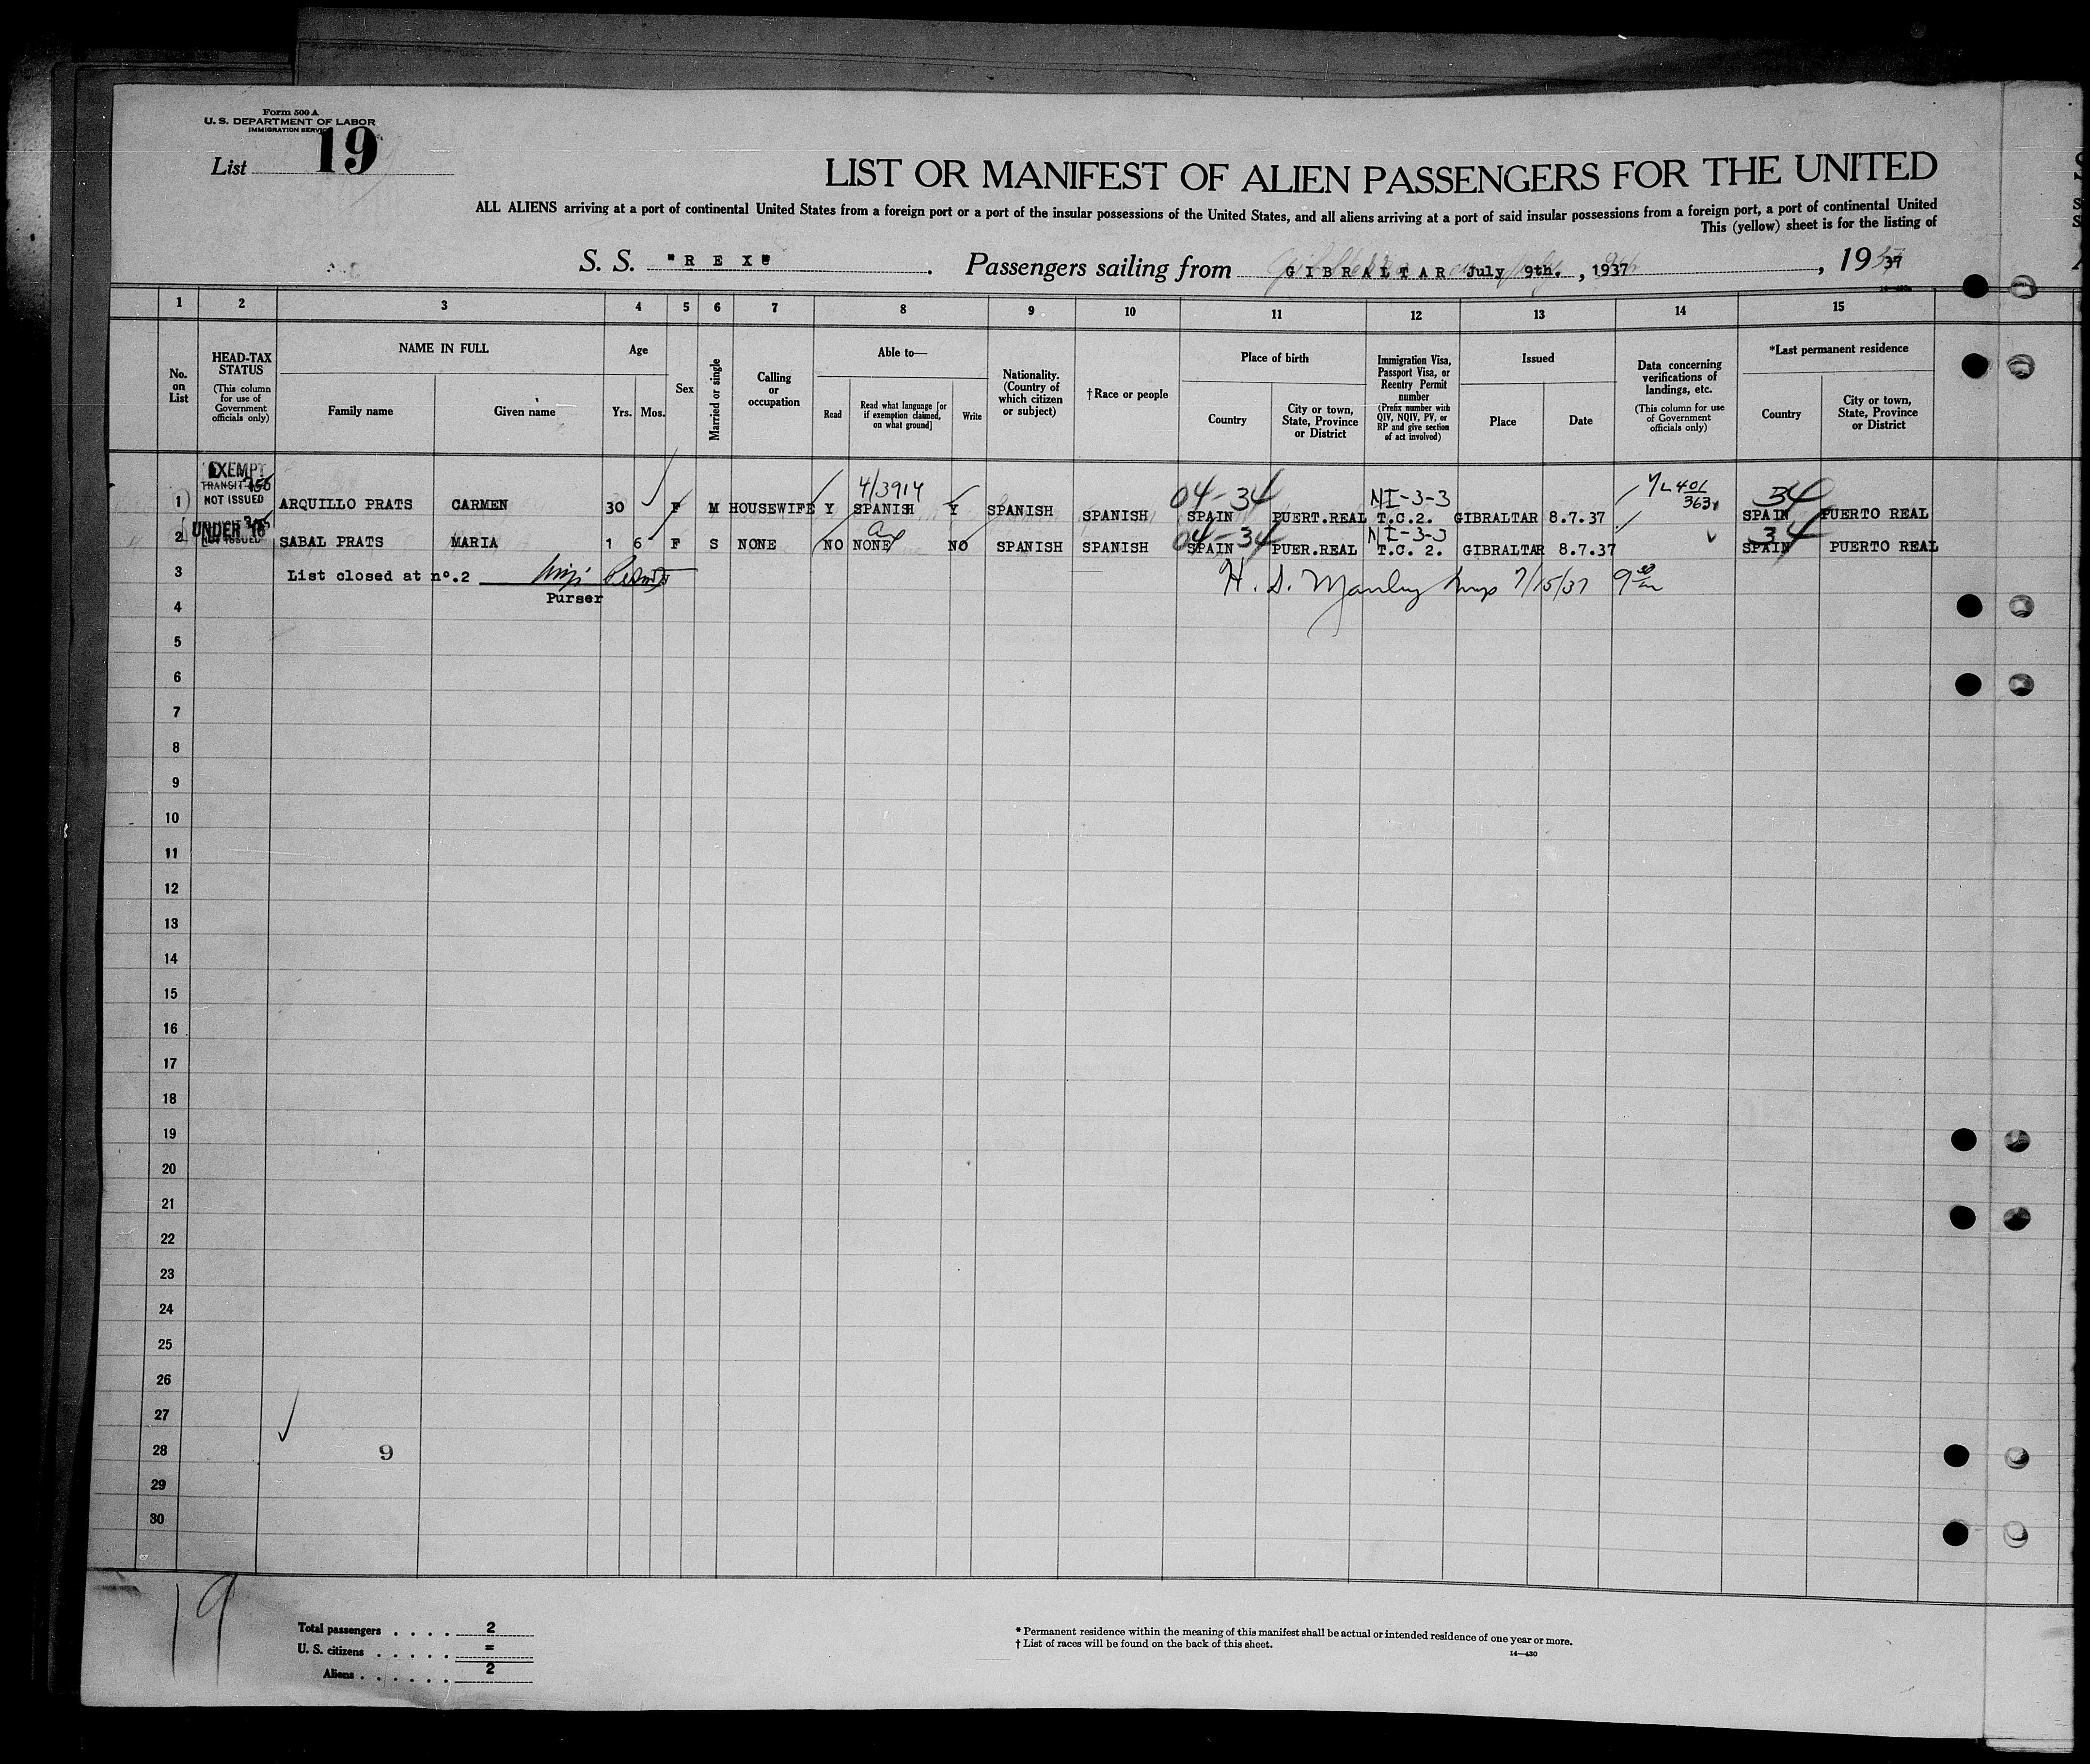 Form 500 A
U. S. DEPARTMENT OF LABOR
IMMIGRATION SERVICE
List 19
LIST OR MANIFEST OF ALIEN PASSENGERS FOR THE UNITED
ALL ALIENS arriving at a port of continental United States from a foreign port or a port of the insular possessions of the United States, and all aliens arriving at a port of said insular possessions from a foreign port, a port of continental United
This (yellow) sheet is for the listing of
S. S. "REX" . Passengers sailing from GIBRALTAR July 9th. , 1937 , 1937
1 2 3 4 5 6 7 8 9 10 11 12 13 14 15
No. on List
HEAD-TAX STATUS
(This column for use of Government officials only)
NAME IN FULL
Family name
Given name
Age
Yrs. Mos.
Sex
Married or single
Calling or occupation
Able to—
Read
Read what language [or if exemption claimed, on what ground]
Write
Nationality. (Country of which citizen or subject)
†Race or people
Place of birth
Country
City or town, State, Province or District
Immigration Visa, Passport Visa, or Reentry Permit number
(Prefix number with QIV, NQIV, PV, or RP and give section of act involved)
Issued
Place
Date
Data concerning verifications of landings, etc.
(This column for use of Government officials only)
*Last permanent residence
Country
City or town, State, Province or District
EXEMPT
TRANSIT
NOT ISSUED
4/3914 04-34 NI-3-3 401 34
363
1 ARQUILLO PRATS CARMEN 30 F M HOUSEWIFE Y SPANISH Y SPANISH SPANISH SPAIN PUERT.REAL T.C.2. GIBRALTAR 8.7.37 SPAIN PUERTO REAL
UNDER 16
NOT ISSUED
04-34 NI-3-3 34
2 SABAL PRATS MARIA 1 6 F S NONE NO NONE NO SPANISH SPANISH SPAIN PUER.REAL T.C. 2. GIBRALTAR 8.7.37 SPAIN PUERTO REAL
3 List closed at nº.2
H. S. Manley Insp 7/15/37 9 30
Purser
4
5
6
7
8
9
10
11
12
13
14
15
16
17
18
19
20
21
22
23
24
25
26
27
28 9
29
30
19
Total passengers . . . . 2
U. S. citizens . . . . . =
Aliens . . . . . . 2
* Permanent residence within the meaning of this manifest shall be actual or intended residence of one year or more.
† List of races will be found on the back of this sheet.
14—430